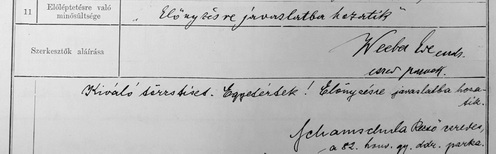 11 Előléptetésre való minősültsége „Előnyösre javaslatba hozatik"
Szerkesztők aláírása
Weeber Ede
ezred parancsk.
Kiváló törzstiszt. Egyetértek! Előnyösre javaslatba hoza-
tik.
Schamschula Rezső ezredes,
a 82. honv. gy. ddr. parka.